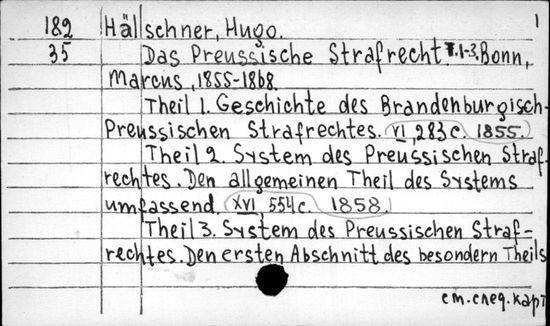 182 Hälschner, Hugo. 1
35 Das Preussische Strafrecht T.1-3. Bonn,
Marcus, 1855-1868
Theil 1. Geschichte des Brandenburgisch-
Preussischen Strafrechtes. VI, 283 c. 1855.
Theil 2. System des Preussischen Straf-
rechtes. Den allgemeinen Theil des Systems
umfassend. XVI, 554 c. 1858.
Theil 3. System des Preussischen Straf-
rechtes. Den ersten Abschnitt des besondern Theils
см. след. карт